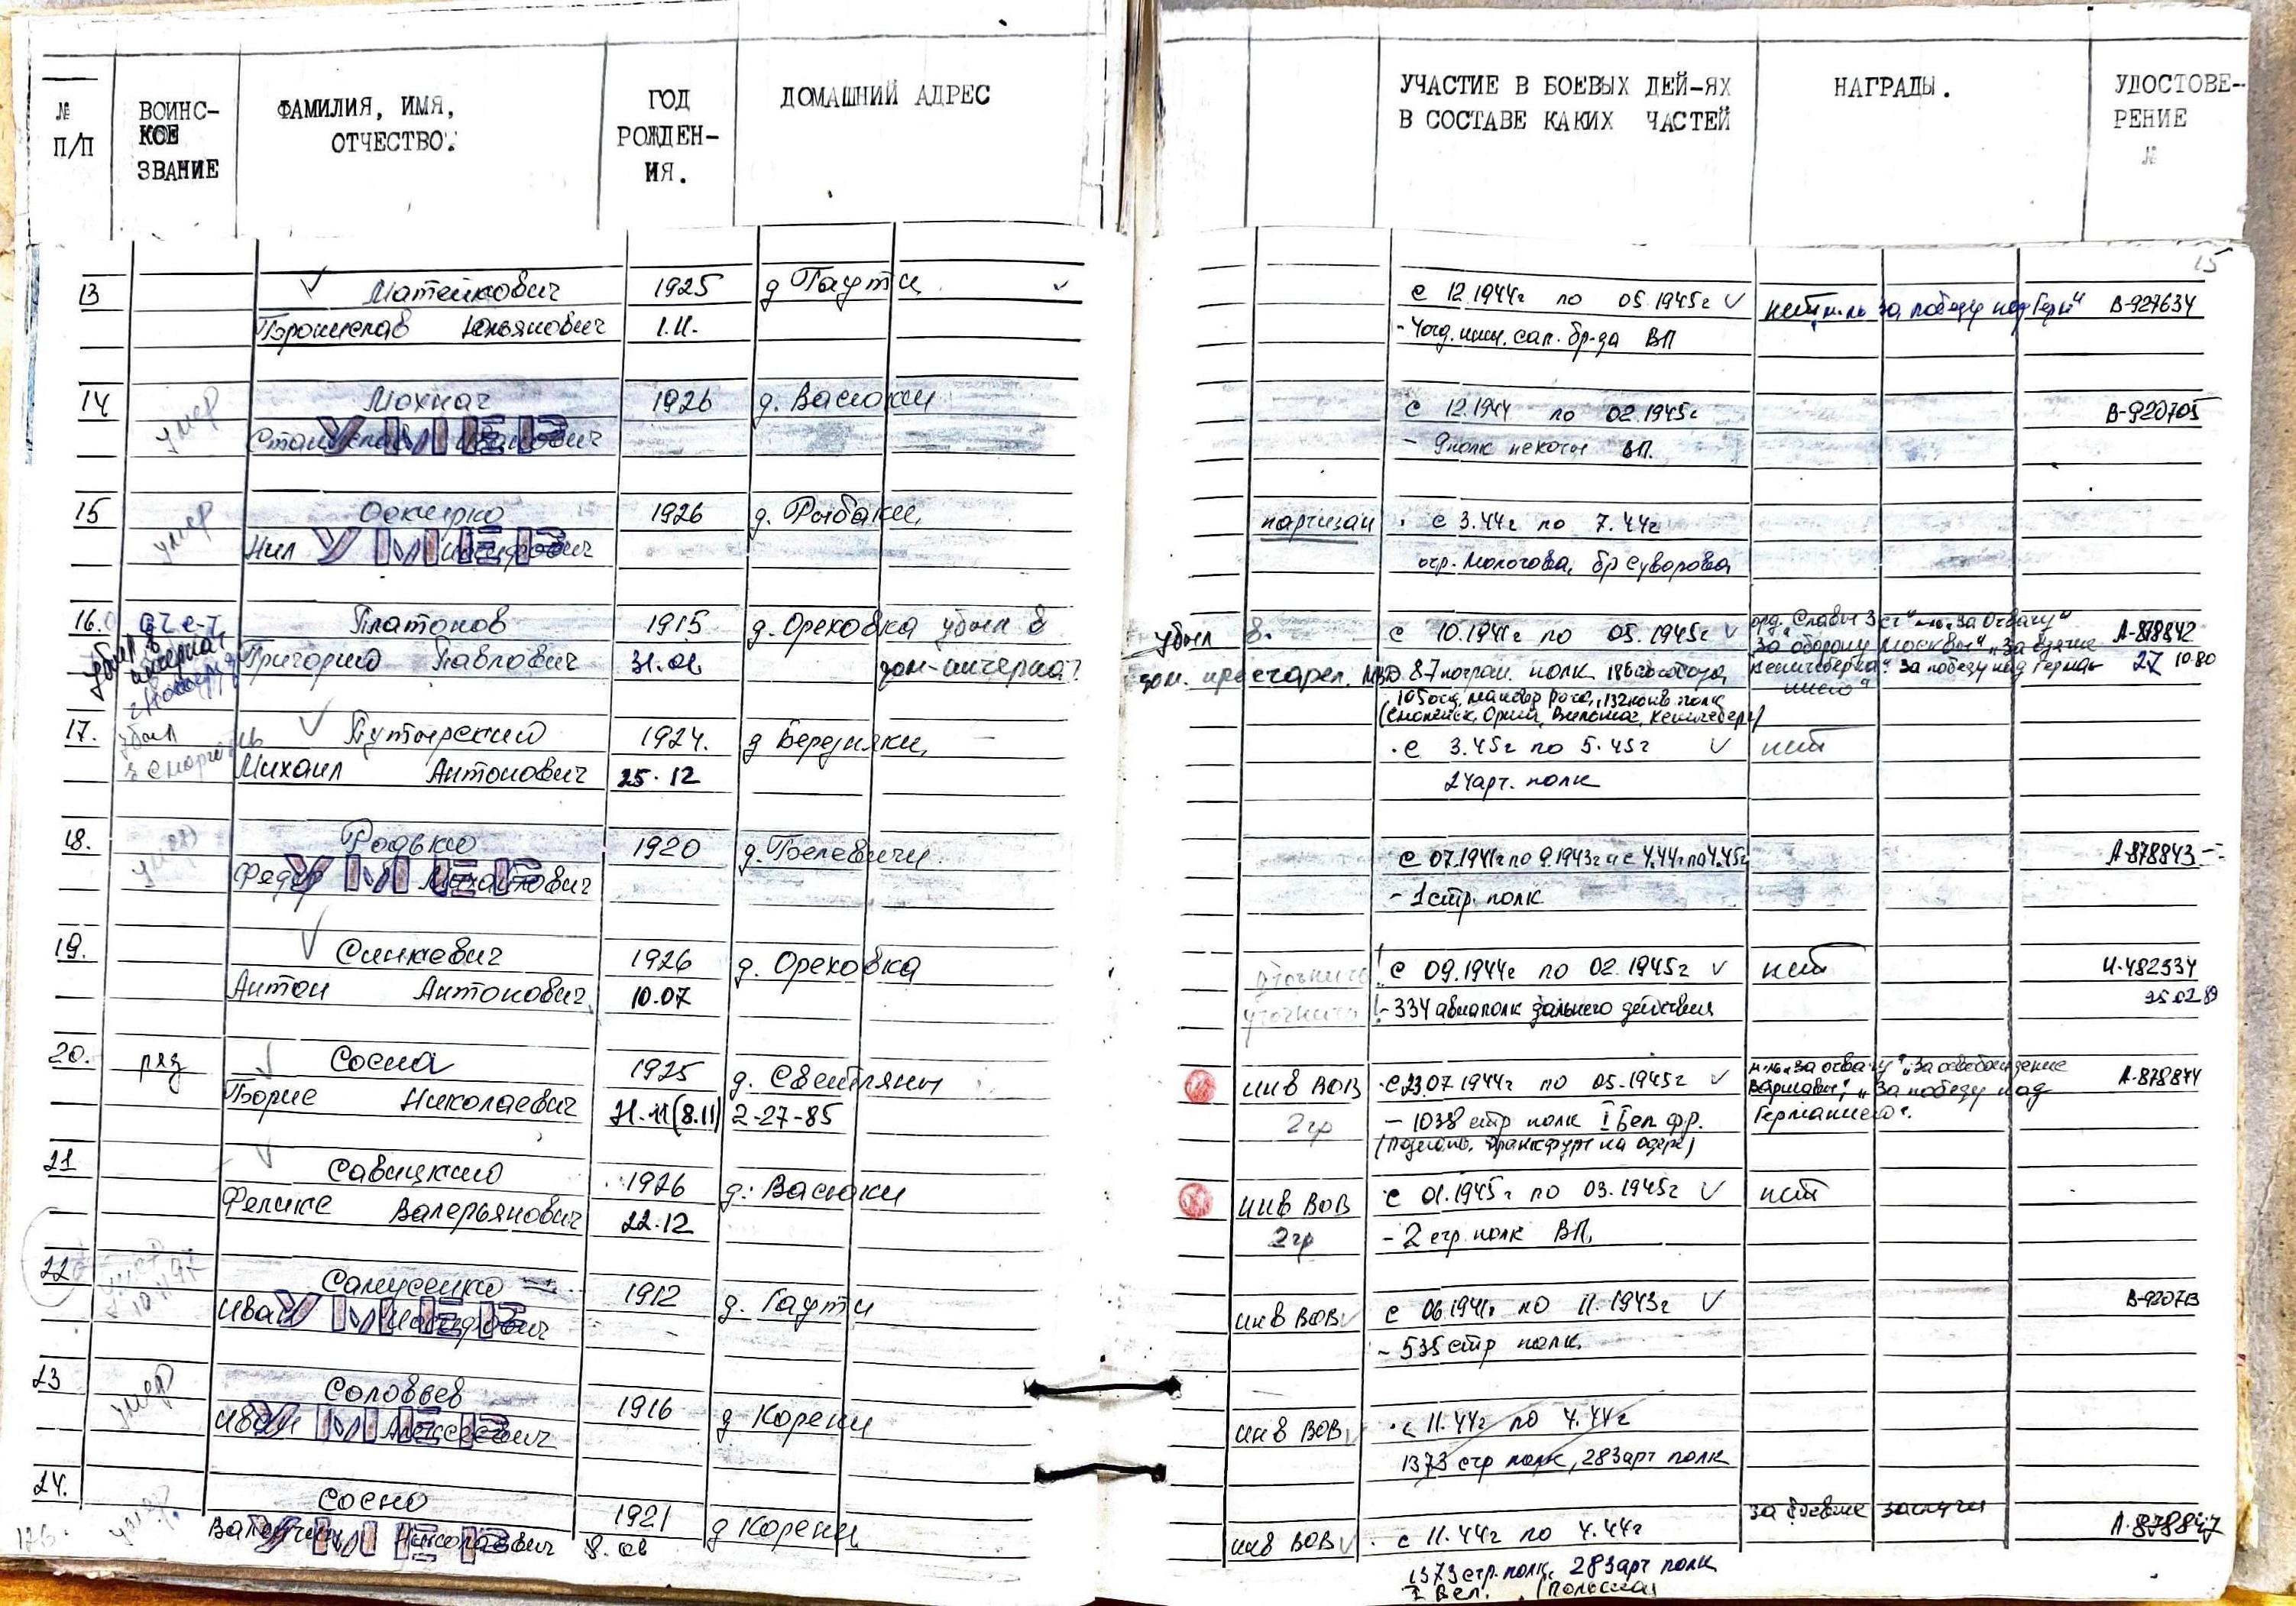 № П/П
ВОИНС-
КОЕ
ЗВАНИЕ
ФАМИЛИЯ, ИМЯ,
ОТЧЕСТВО.
ГОД
РОЖДЕН-
ИЯ.
ДОМАШНИЙ АДРЕС
УЧАСТИЕ В БОЕВЫХ ДЕЙ-ЯХ
В СОСТАВЕ КАКИХ ЧАСТЕЙ
НАГРАДЫ.
УДОСТОВЕ-
РЕНИЕ
№
15
13 Матейкович 1925 д Гаути с 12.1944г по 05.1945г нет за победу над Герм" В-927634
Бронислав Юльянович 1.11. - 4 отд. инж. сап. бр-да ВП
14 умер Мохнач 1926 д. Васюки с 12.1944 по 02.1945г В-920705
Станислав Иванович УМЕР - 9 полк пехоты ВП.
15 умер Оскирко 1926 д. Рыбаки, партизан с 3.44г по 7.44г
Нил УМЕР отр. Молотова, бр Суворова
16. Платонов 1915 д. Ореховка убыл в убыл в. с 10.1941г по 05.1945г орд. Славы 3 ст "За Отвагу" А-878842
Григорий Павлович 31.01 дом-интернат дом. престарел. 87 погран. полк "За оборону Москвы" "За взятие 27 10.80
Кенигсберга" За победу над Герма-
нией"
(Смоленск, Орша, Вильнюс, Кенигсберг)
17. убыл Путырский 1924. д Березняки, с 3.45г по 5.45г нет
в Сморгонь Михаил Антонович 25.12 24 арт. полк
18. умер Родько 1920 д. Белевичи с 07.1941г по 9.1943г и с 4.44г по 4.45г А-878843
Федор Михайлович УМЕР - 1 стр. полк
19. Синкевич 1926 д. Ореховка уточнить с 09.1944г по 02.1945г нет И-482534
Антон Антонович 10.07 уточнить - 334 авиаполк дальнего действия
20. ряд Сосна 1925 д. Свентляны инв ВОВ с 23.07.1944г по 05.1945г "За отвагу", "За освобождение А-878844
Борис Николаевич (8.11) 2-27-85 2гр - 1038 стр полк I Бел фр. Варшавы", "За победу над
(Познань, Франкфурт на Одере) Германией".
21 Савицкий 1926 д. Васюки инв ВОВ с 01.1945г по 03.1945г нет
Феликс Валерьянович 22.12 2гр - 2 стр. полк ВП.
22 Самусенко 1912 д. Гаути инв ВОВ с 06.1941г по 11.1943г В-920713
Иван УМЕР - 535 стр полк.
23 умер Соловьев 1916 д Корени инв ВОВ с 11.44г по 4.44г
Иван Алексеевич УМЕР 1373 стр полк, 283 арт полк
24. умер. Сосно 1921 д Корени инв ВОВ с 11.44г по 4.44г за боевые заслуги А-878847
Валентин Николаевич УМЕР 8.01 1373 стр. полк, 283 арт полк
I Бел. (Польша)